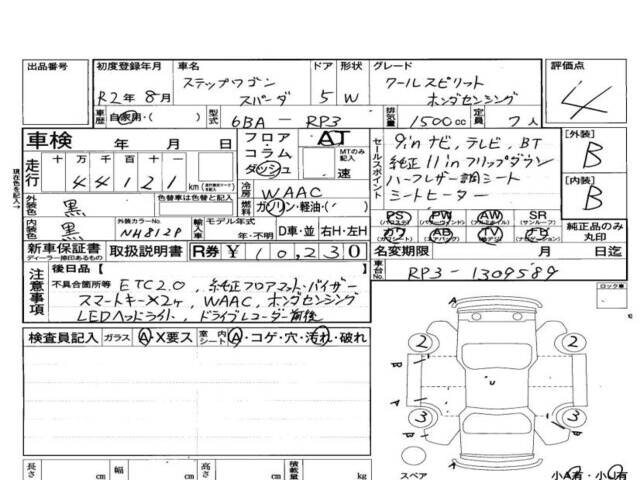 出品番号 初度登録年月 車名 ドア 形状 グレード 評価点
ステップワゴン クールスピリット
R2年8月 スパーダ 5 W ホンダセンシング 4
車歴 自家用・( ) 型式 6BA - RP3 排気量 1500cc 定員 7人
車検 年 月 日 フロア AT
コラム MTのみ記入
ダッシュ 速
セールスポイント 9inナビ,テレビ,BT
純正11inフリップダウン
ハーフレザー調シート
シートヒーター
[外装] B
[内装] B
走行 十 万 千 百 十 一
44121 km
現在色を記入→
外装色 黒 色替車は色替と記入
冷房 WAAC
燃料 ガソリン・軽油・(
内装色 黒 外装カラーNo. NH812P 輸入車 モデル年式 年・不明 D車・並 右H・左H
PS PW AW SR
(パワーウィンドウ) (サンルーフ)
カワ AB TV FD
純正品のみ丸印
新車保証書 取扱説明書 R券 ¥10,230 名変期限 月 日迄
ディーラー捺印あるもの
車台No. RP3-1309589
注意事項 後日品【 】
不具合箇所等 ETC2.0,純正フロアマット・バイザー
スマートキー×2ヶ,WAAC,ホンダセンシング
LEDヘッドライト,ドライブレコーダー前後
ロック車
検査員記入 ガラス A・X要ス 室内シート A・コゲ・穴・汚れ・破れ
A
2 2
B
U
A
3 3
B B
A
スペア 小A有・小U有
長さ cm 幅 cm 高さ cm 積載量 kg